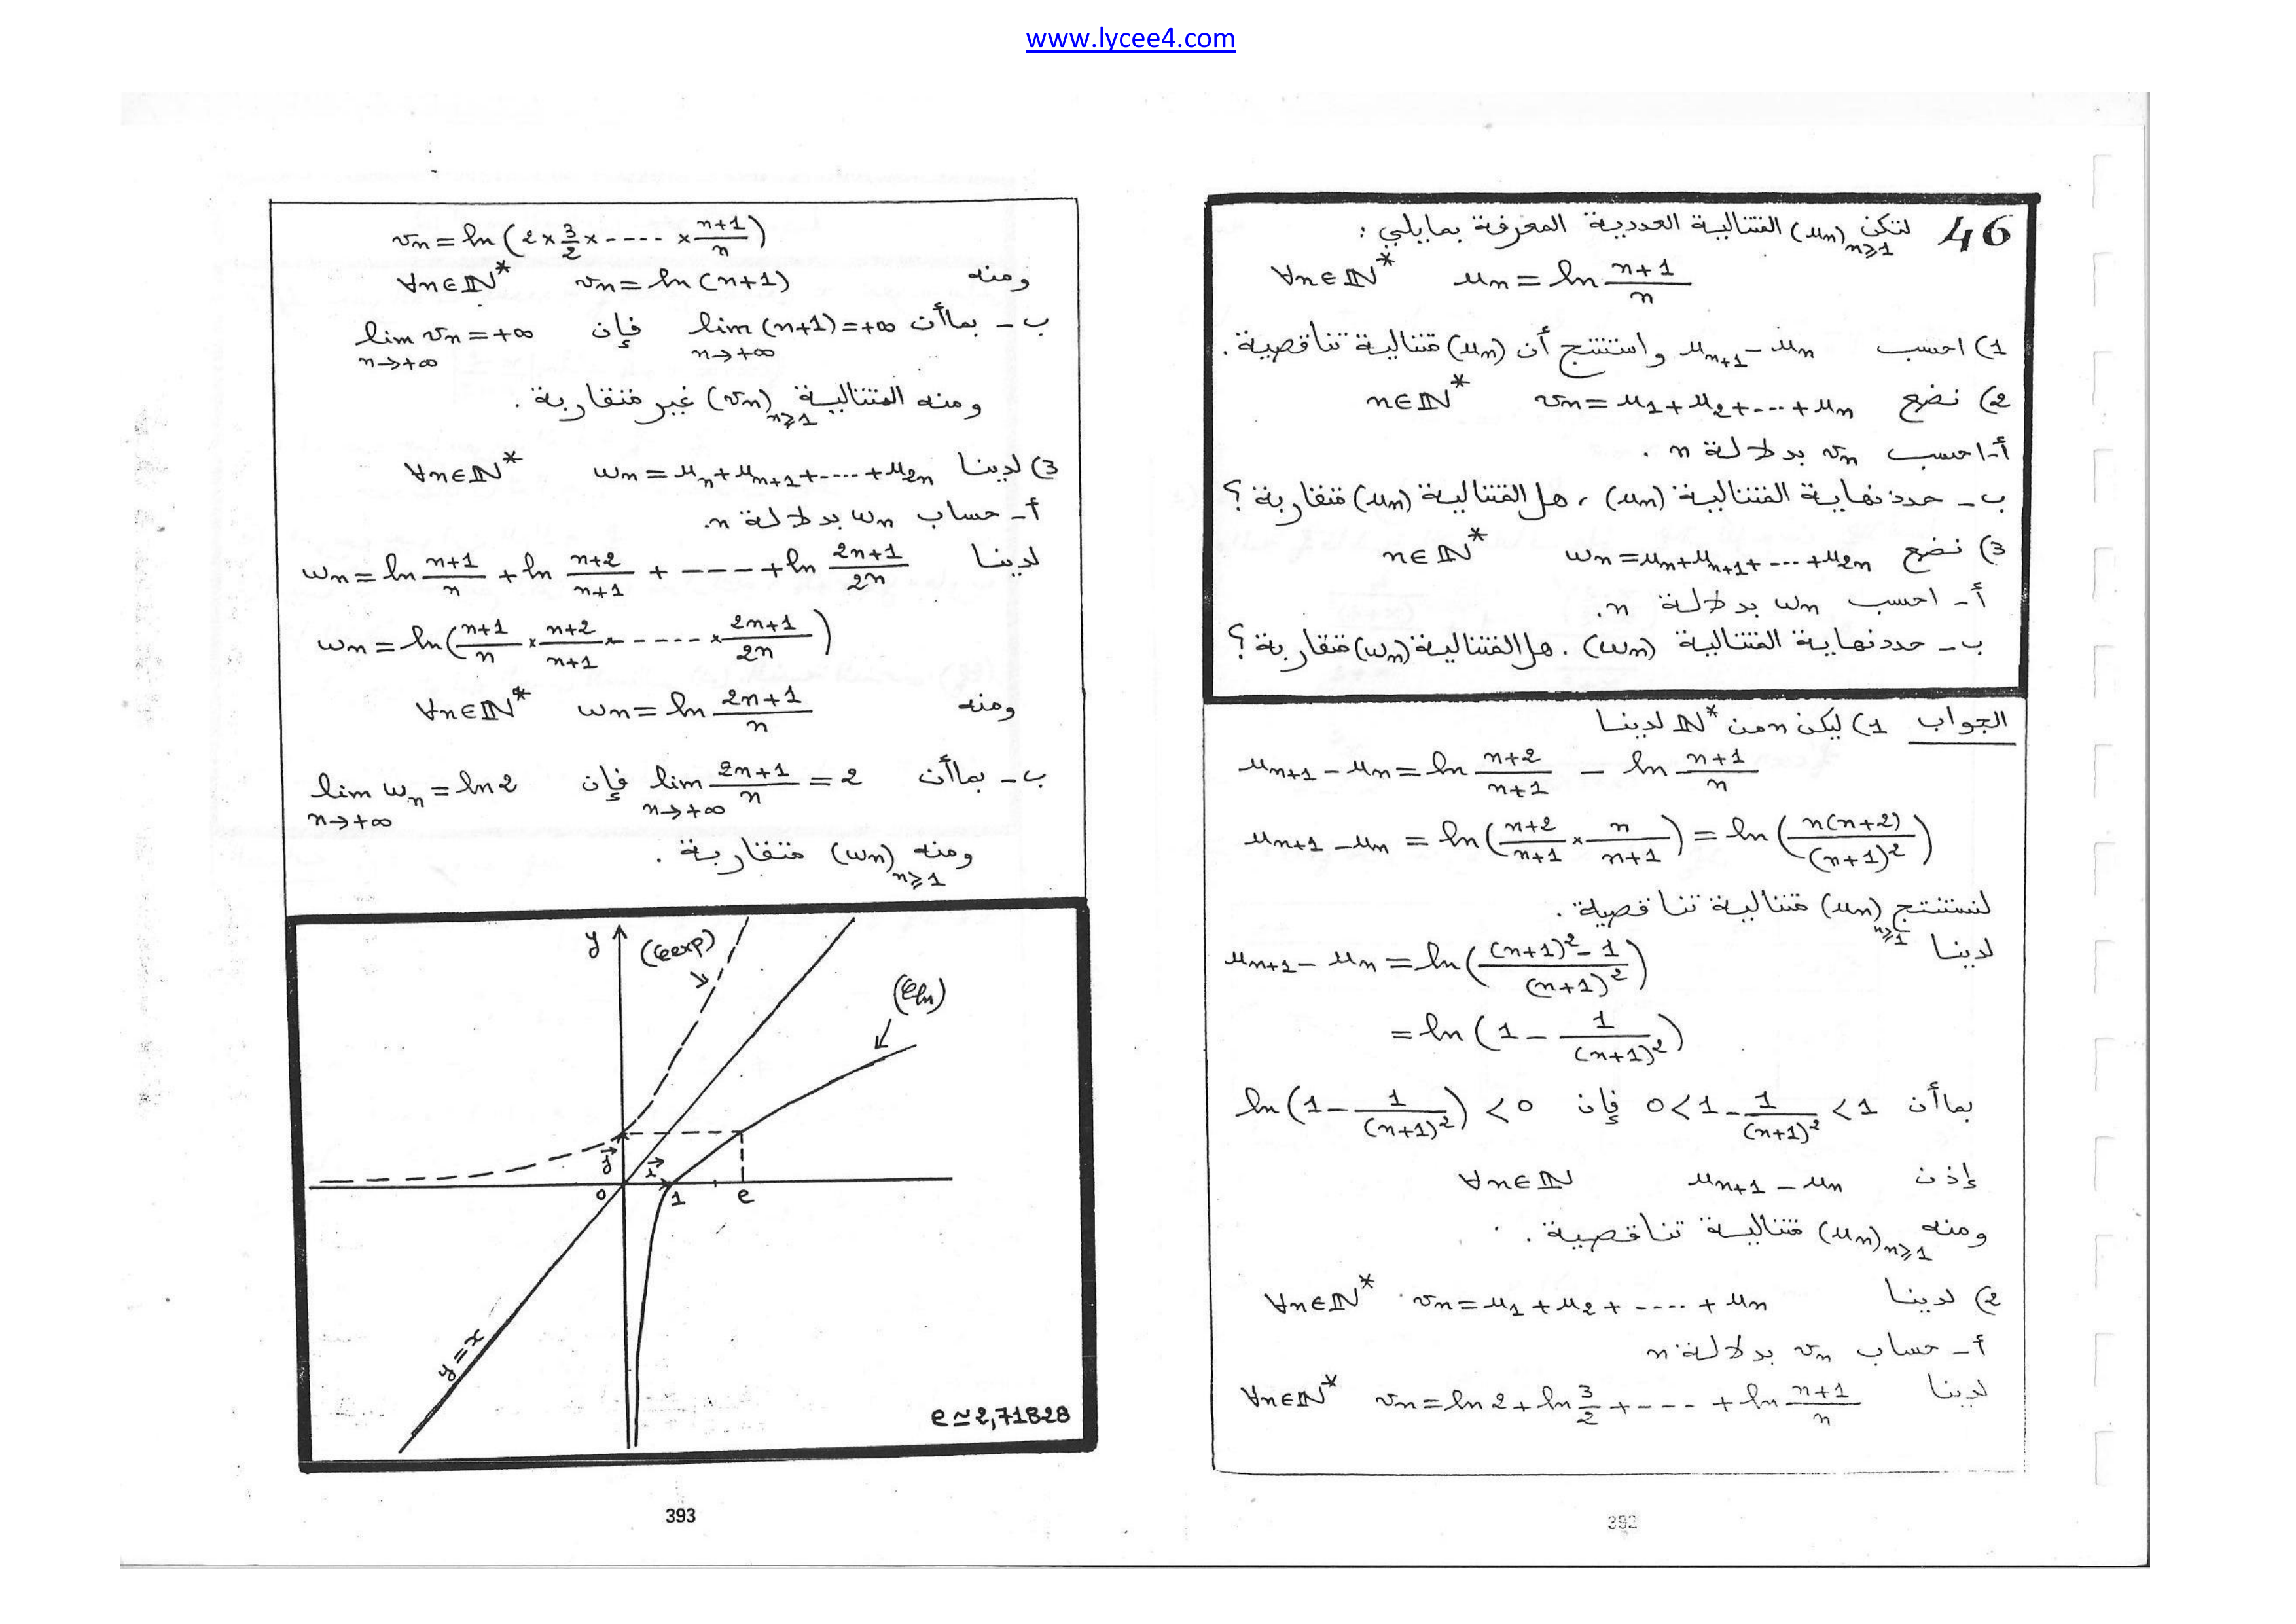 www.lycee4.com
46 لتكن (un)n⩾1 المتتالية العددية المعرفة بمايلي :
∀n∈ℕ* un = ln (n+1)/n
1) احسب un+1 − un واستنتج أن (un) متتالية تناقصية.
2) نضع vn = u1 + u2 + ... + un n∈ℕ*
أ- احسب vn بدلالة n .
ب - حدد نهاية المتتالية (un) ، هل المتتالية (un) متقاربة ؟
3) نضع wn = un + un+1 + ... + u2n n∈ℕ*
أ - احسب wn بدلالة n.
ب - حدد نهاية المتتالية (wn) . هل المتتالية (wn) متقاربة ؟
الجواب 1) ليكن n من ℕ* لدينا
un+1 − un = ln (n+2)/(n+1) − ln (n+1)/n
un+1 − un = ln((n+2)/(n+1) × n/(n+1)) = ln(n(n+2)/(n+1)²)
لنستنتج (un)n⩾1 متتالية تناقصية .
لدينا un+1 − un = ln(((n+1)² − 1)/(n+1)²)
= ln(1 − 1/(n+1)²)
بما أن 0 < 1 − 1/(n+1)² < 1 فإن ln(1 − 1/(n+1)²) < 0
إذن un+1 − un ∀n∈ℕ
ومنه (un)n⩾1 متتالية تناقصية .
2) لدينا vn = u1 + u2 + .... + un ∀n∈ℕ*
أ - حساب vn بدلالة n
لدينا vn = ln 2 + ln 3/2 + --- + ln (n+1)/n ∀n∈ℕ*
392
vn = ln(2 × 3/2 × ---- × (n+1)/n)
ومنه vn = ln(n+1) ∀n∈ℕ*
ب - بما أن lim (n+1) = +∞ n→+∞ فإن lim vn = +∞ n→+∞
ومنه المتتالية (vn)n⩾1 غير متقاربة .
3) لدينا wn = un + un+1 + .... + u2n ∀n∈ℕ*
أ - حساب wn بدلالة n.
لدينا wn = ln (n+1)/n + ln (n+2)/(n+1) + ---- + ln (2n+1)/2n
wn = ln((n+1)/n × (n+2)/(n+1) × ----- × (2n+1)/2n)
ومنه wn = ln (2n+1)/n ∀n∈ℕ*
ب - بما أن lim (2n+1)/n = 2 n→+∞ فإن lim wn = ln 2 n→+∞
ومنه (wn)n⩾1 متقاربة .
y (𝒞exp)
(𝒞ln)
j⃗ i⃗
0 1 e
y=x
e≃2,71828
393